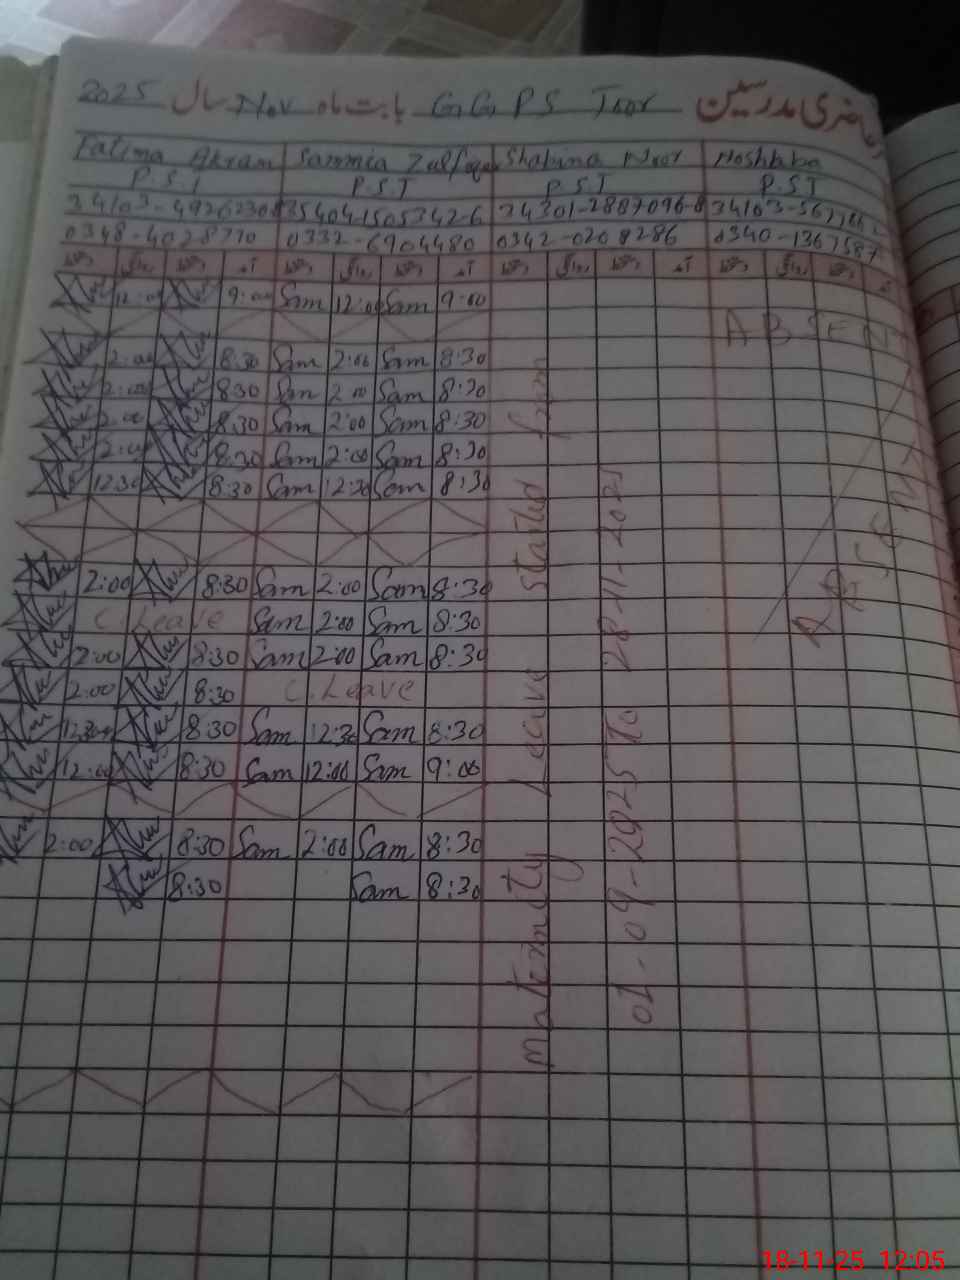 حاضری مدرسین GGPS Toor بابت ماہ Nov سال 2025
Fatima Akram Sammia Zulfqar Shabina Noor Hoshbaba
P.S.T P.S.T P.S.T P.S.T
34103-4926230 35404-1505342-6 34301-2887096-8 34103-567
0348-4028770 0332-6904480 0342-0208286 0340-1367587
دستخط روانگی دستخط آمد دستخط روانگی دستخط آمد دستخط روانگی دستخط آمد دستخط روانگی دستخط آمد
12:00 9:00 Sam 12:00 Sam 9:00
2:00 8:30 Sam 2:00 Sam 8:30
2:00 8:30 Sam 2:00 Sam 8:30
2:00 8:30 Sam 2:00 Sam 8:30
2:00 8:30 Sam 2:00 Sam 8:30
12:30 8:30 Sam 12:30 Sam 8:30
2:00 8:30 Sam 2:00 Sam 8:30
C. Leave Sam 2:00 Sam 8:30
2:00 8:30 Sam 2:00 Sam 8:30
2:00 8:30 C. Leave
12:30 8:30 Sam 12:30 Sam 8:30
12:00 8:30 Sam 12:00 Sam 9:00
2:00 8:30 Sam 2:00 Sam 8:30
8:30 Sam 8:30
Maternity Leave Started from
01-09-2025 To 28-11-2025
ABSEN
ABSENT
18-11-25 12:05